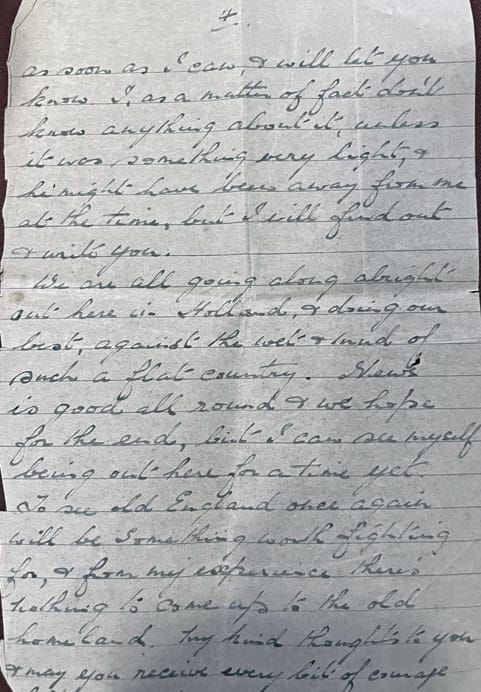 4.
as soon as I can, & will let you
know I, as a matter of fact don't
know anything about it, unless
it was something very light, &
he might have been away from me
at the time, but I will find out
& write you.
We are all going along alright
out here in Holland, & doing our
best, against the wet & mud of
such a flat country. News
is good all round & we hope
for the end, but I can see myself
being out here for a time yet.
To see old England once again
will be something worth fighting
for, & from my experience there's
nothing to come up to the old
home land. My kind thoughts to you
& may you receive every bit of courage